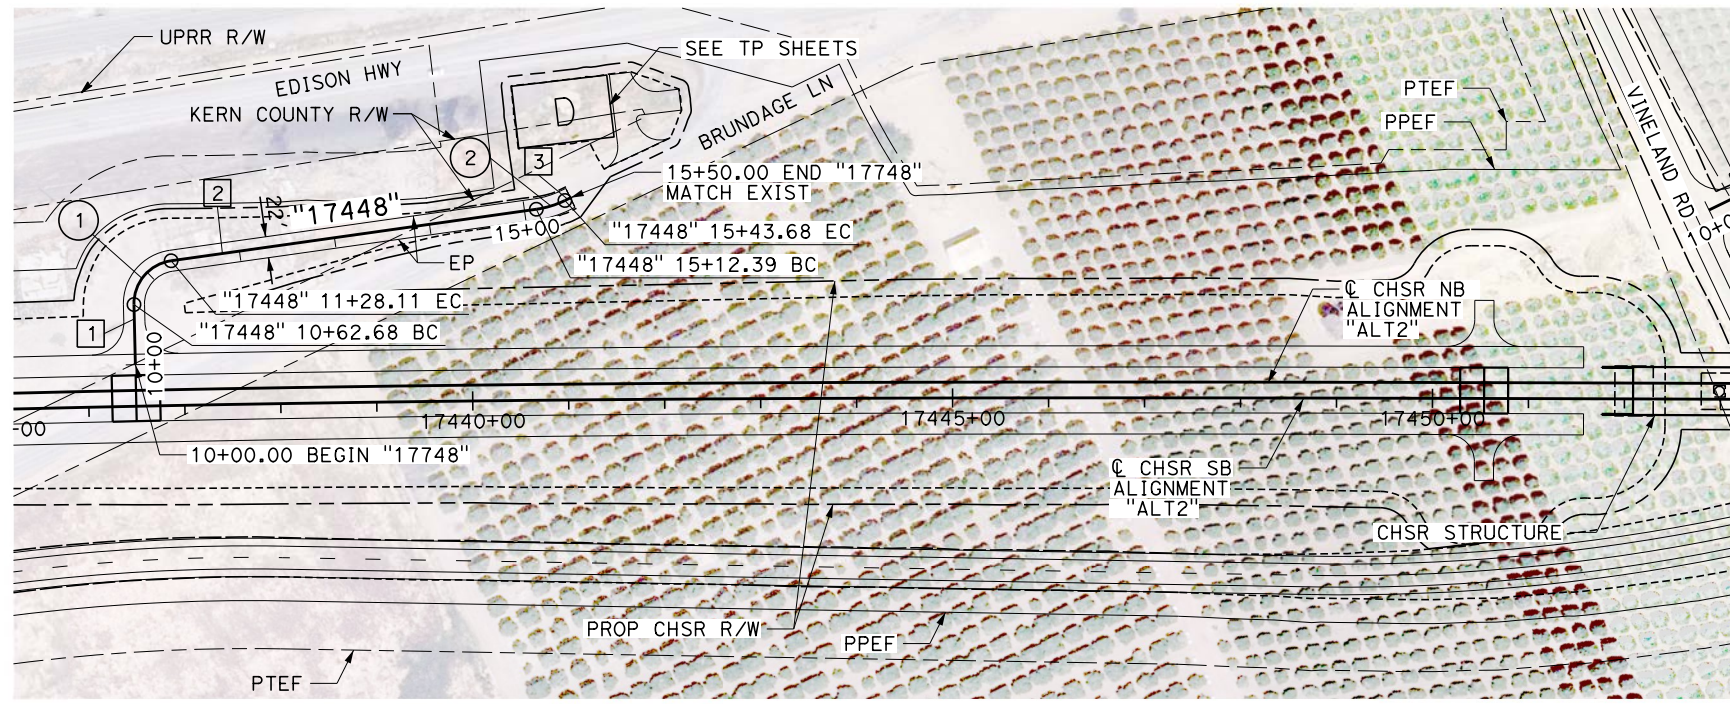 UPRR R/W
EDISON HWY
KERN COUNTY R/W
SEE TP SHEETS
D
BRUNDAGE LN
PTEF
PPEF
VINELAND RD
2
3
15+50.00 END "17748"
MATCH EXIST
1
2
22'
"17448"
15+00
"17448" 15+43.68 EC
EP
"17448" 15+12.39 BC
"17448" 11+28.11 EC
"17448" 10+62.68 BC
1
10+00
℄ CHSR NB
ALIGNMENT
"ALT2"
17440+00
17445+00
17450+00
10+00.00 BEGIN "17748"
℄ CHSR SB
ALIGNMENT
"ALT2"
CHSR STRUCTURE
PROP CHSR R/W
PPEF
PTEF